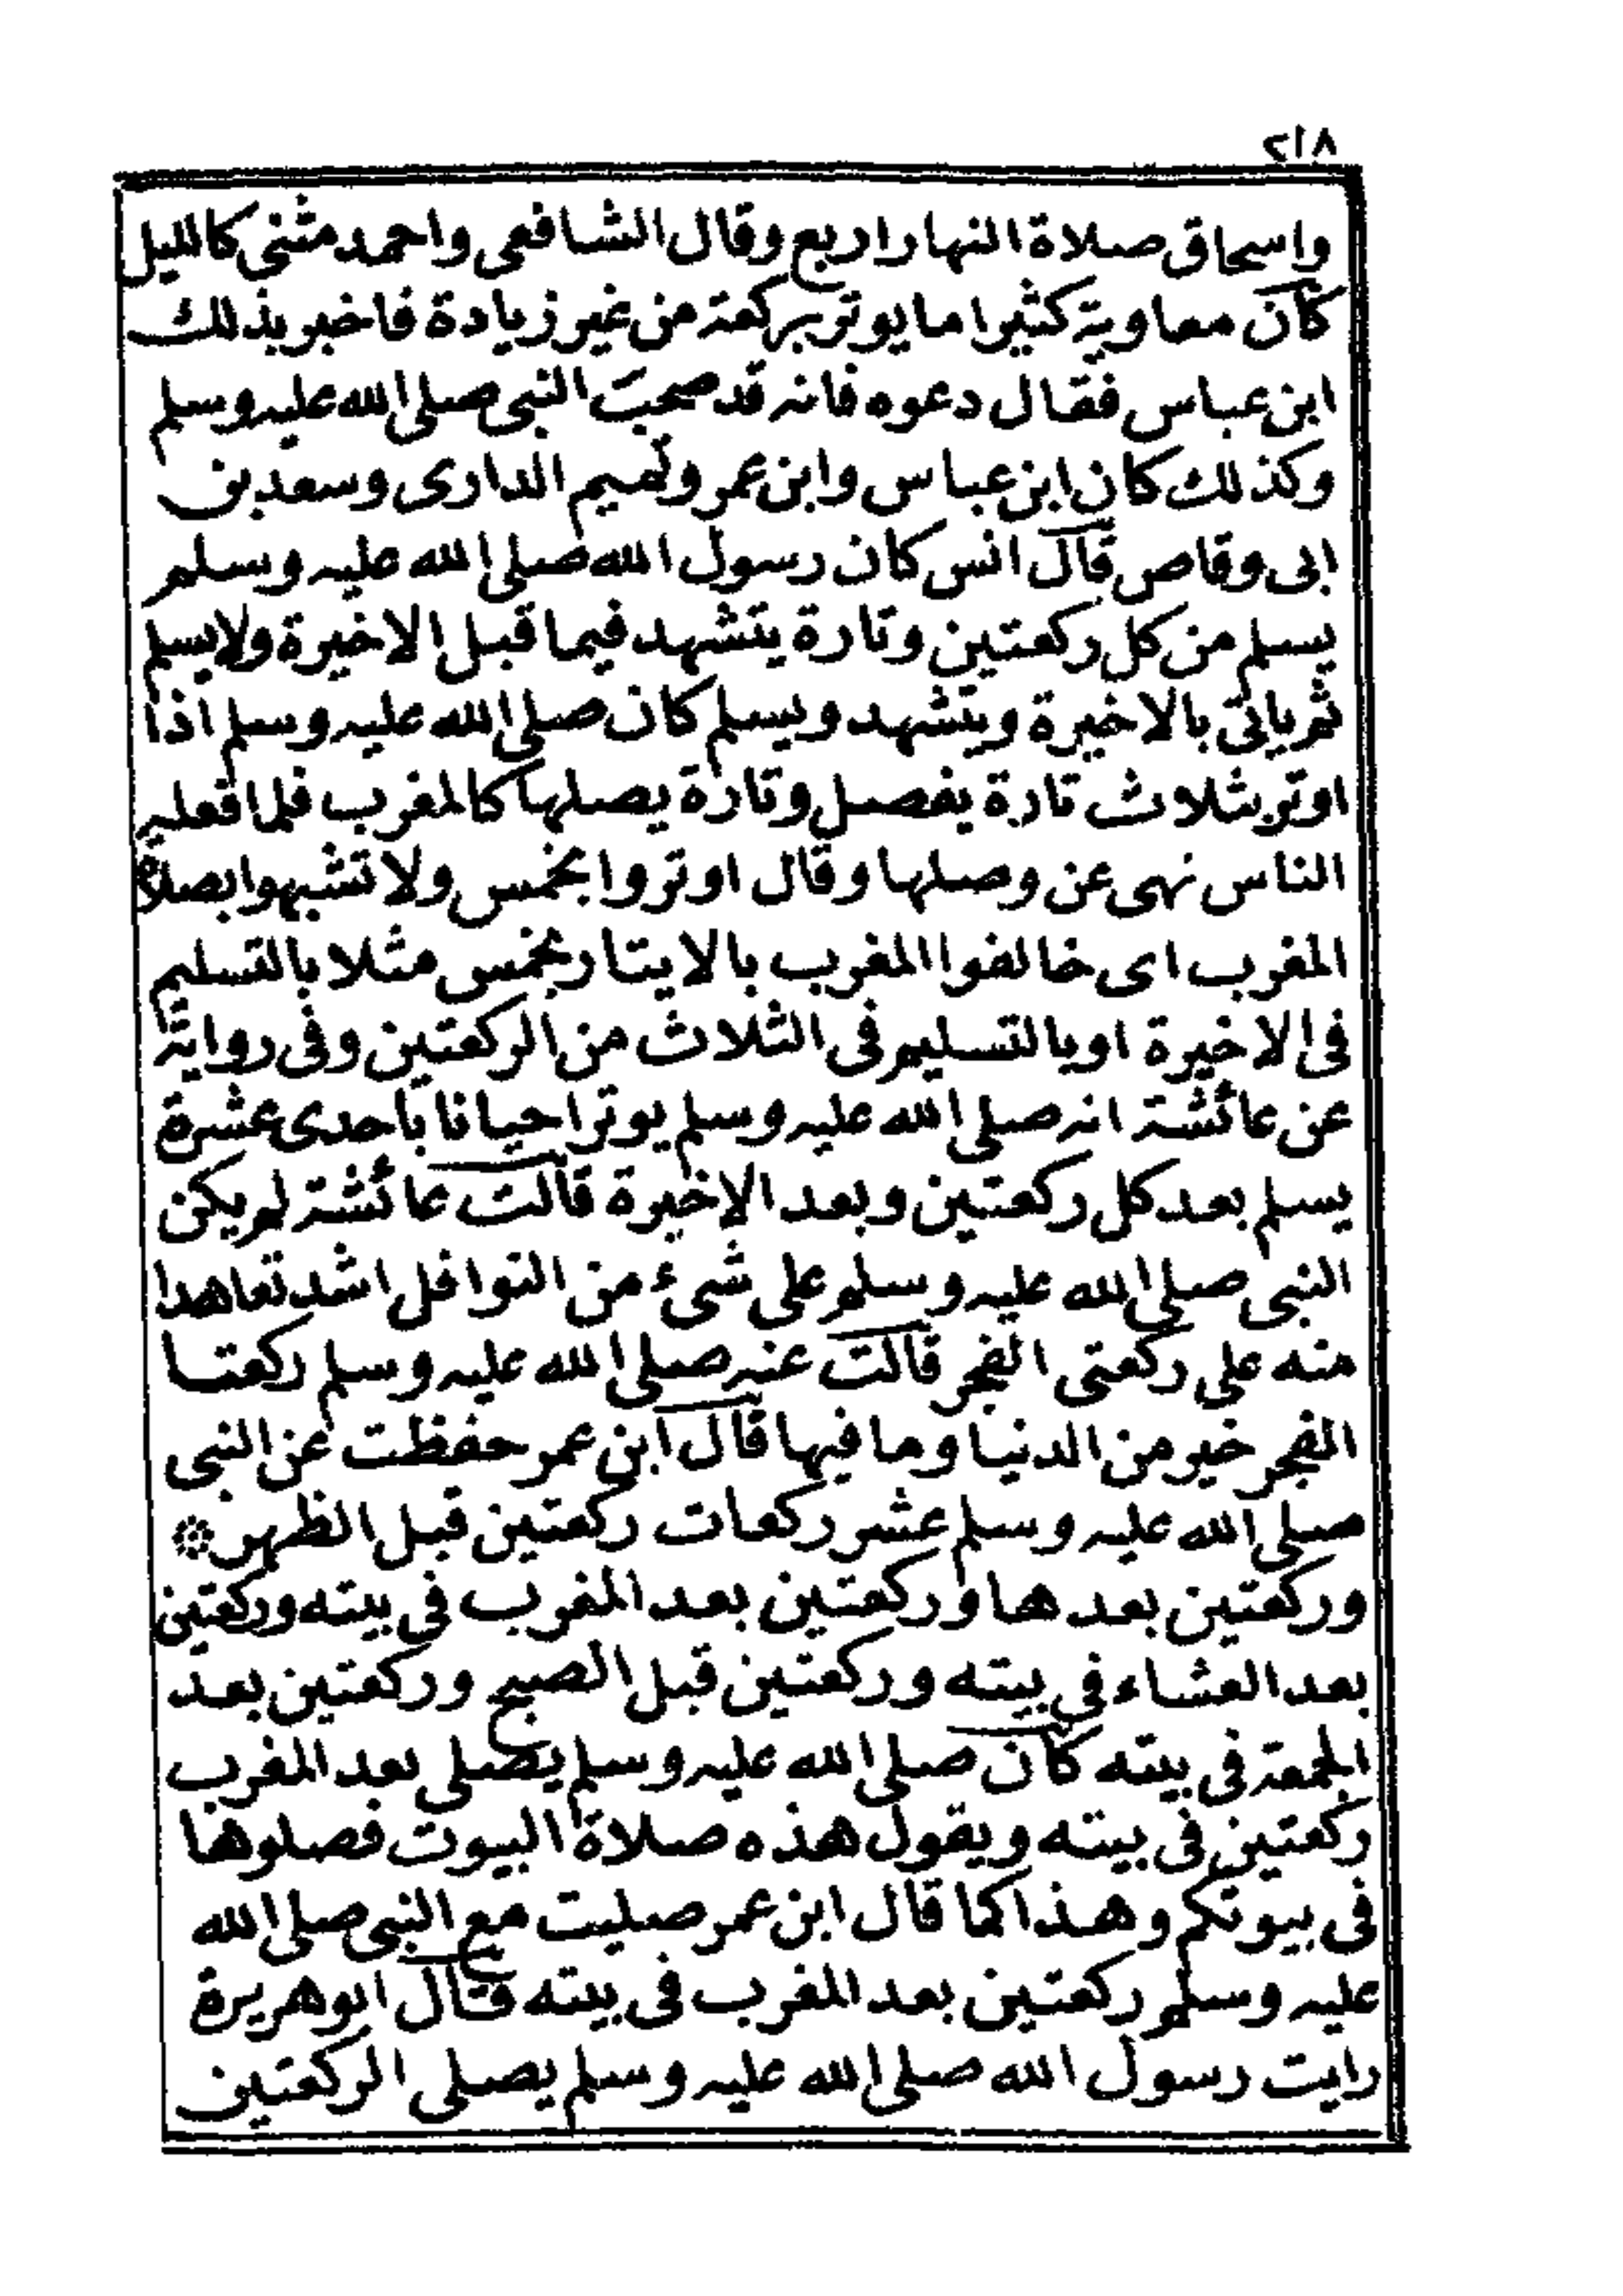 ٢١٨
واسحاق صلاة النهار اربع وقال الشافعى واحمد مثنى كالليل
كان معاوية كثيرا ما يوتر بركعة من غير زيادة فاخبر بذلك
ابن عباس فقال دعوه فانه قد صحب النبى صلى الله عليه وسلم
وكذلك كان ابن عباس وابن عمر وتميم الدارى وسعد بن
ابى وقاص قال انس كان رسول الله صلى الله عليه وسلم
يسلم من كل ركعتين وتارة يتشهد فيما قبل الاخيرة ولا يسلم
ثم ياتى بالاخيرة ويتشهد ويسلم كان صلى الله عليه وسلم اذا
اوتر بثلاث تارة يفصل وتارة يصلها كالمغرب فلما فعله
الناس نهى عن وصلها وقال اوتروا بخمس ولا تشبهوا بصلاة
المغرب اى خالفوا المغرب بالايتار بخمس مثلا بالتسليم
فى الاخيرة او بالتسليم فى الثلاث من الركعتين وفى رواية
عن عائشة انه صلى الله عليه وسلم يوتر احيانا باحدى عشرة
يسلم بعد كل ركعتين وبعد الاخيرة قالت عائشة لم يكن
النبى صلى الله عليه وسلم على شىء من النوافل اشد تعاهدا
منه على ركعتى الفجر قالت عنه صلى الله عليه وسلم ركعتا
الفجر خير من الدنيا وما فيها قال ابن عمر حفظت عن النبى
صلى الله عليه وسلم عشر ركعات ركعتين قبل الظهر
وركعتين بعدها وركعتين بعد المغرب فى بيته وركعتين
بعد العشاء فى بيته وركعتين قبل الصبح وركعتين بعد
الجمعة فى بيته كان صلى الله عليه وسلم يصلى بعد المغرب
ركعتين فى بيته ويقول هذه صلاة البيوت فصلوها
فى بيوتكم وهذا كما قال ابن عمر صليت مع النبى صلى الله
عليه وسلم ركعتين بعد المغرب فى بيته قال ابو هريرة
رايت رسول الله صلى الله عليه وسلم يصلى الركعتين